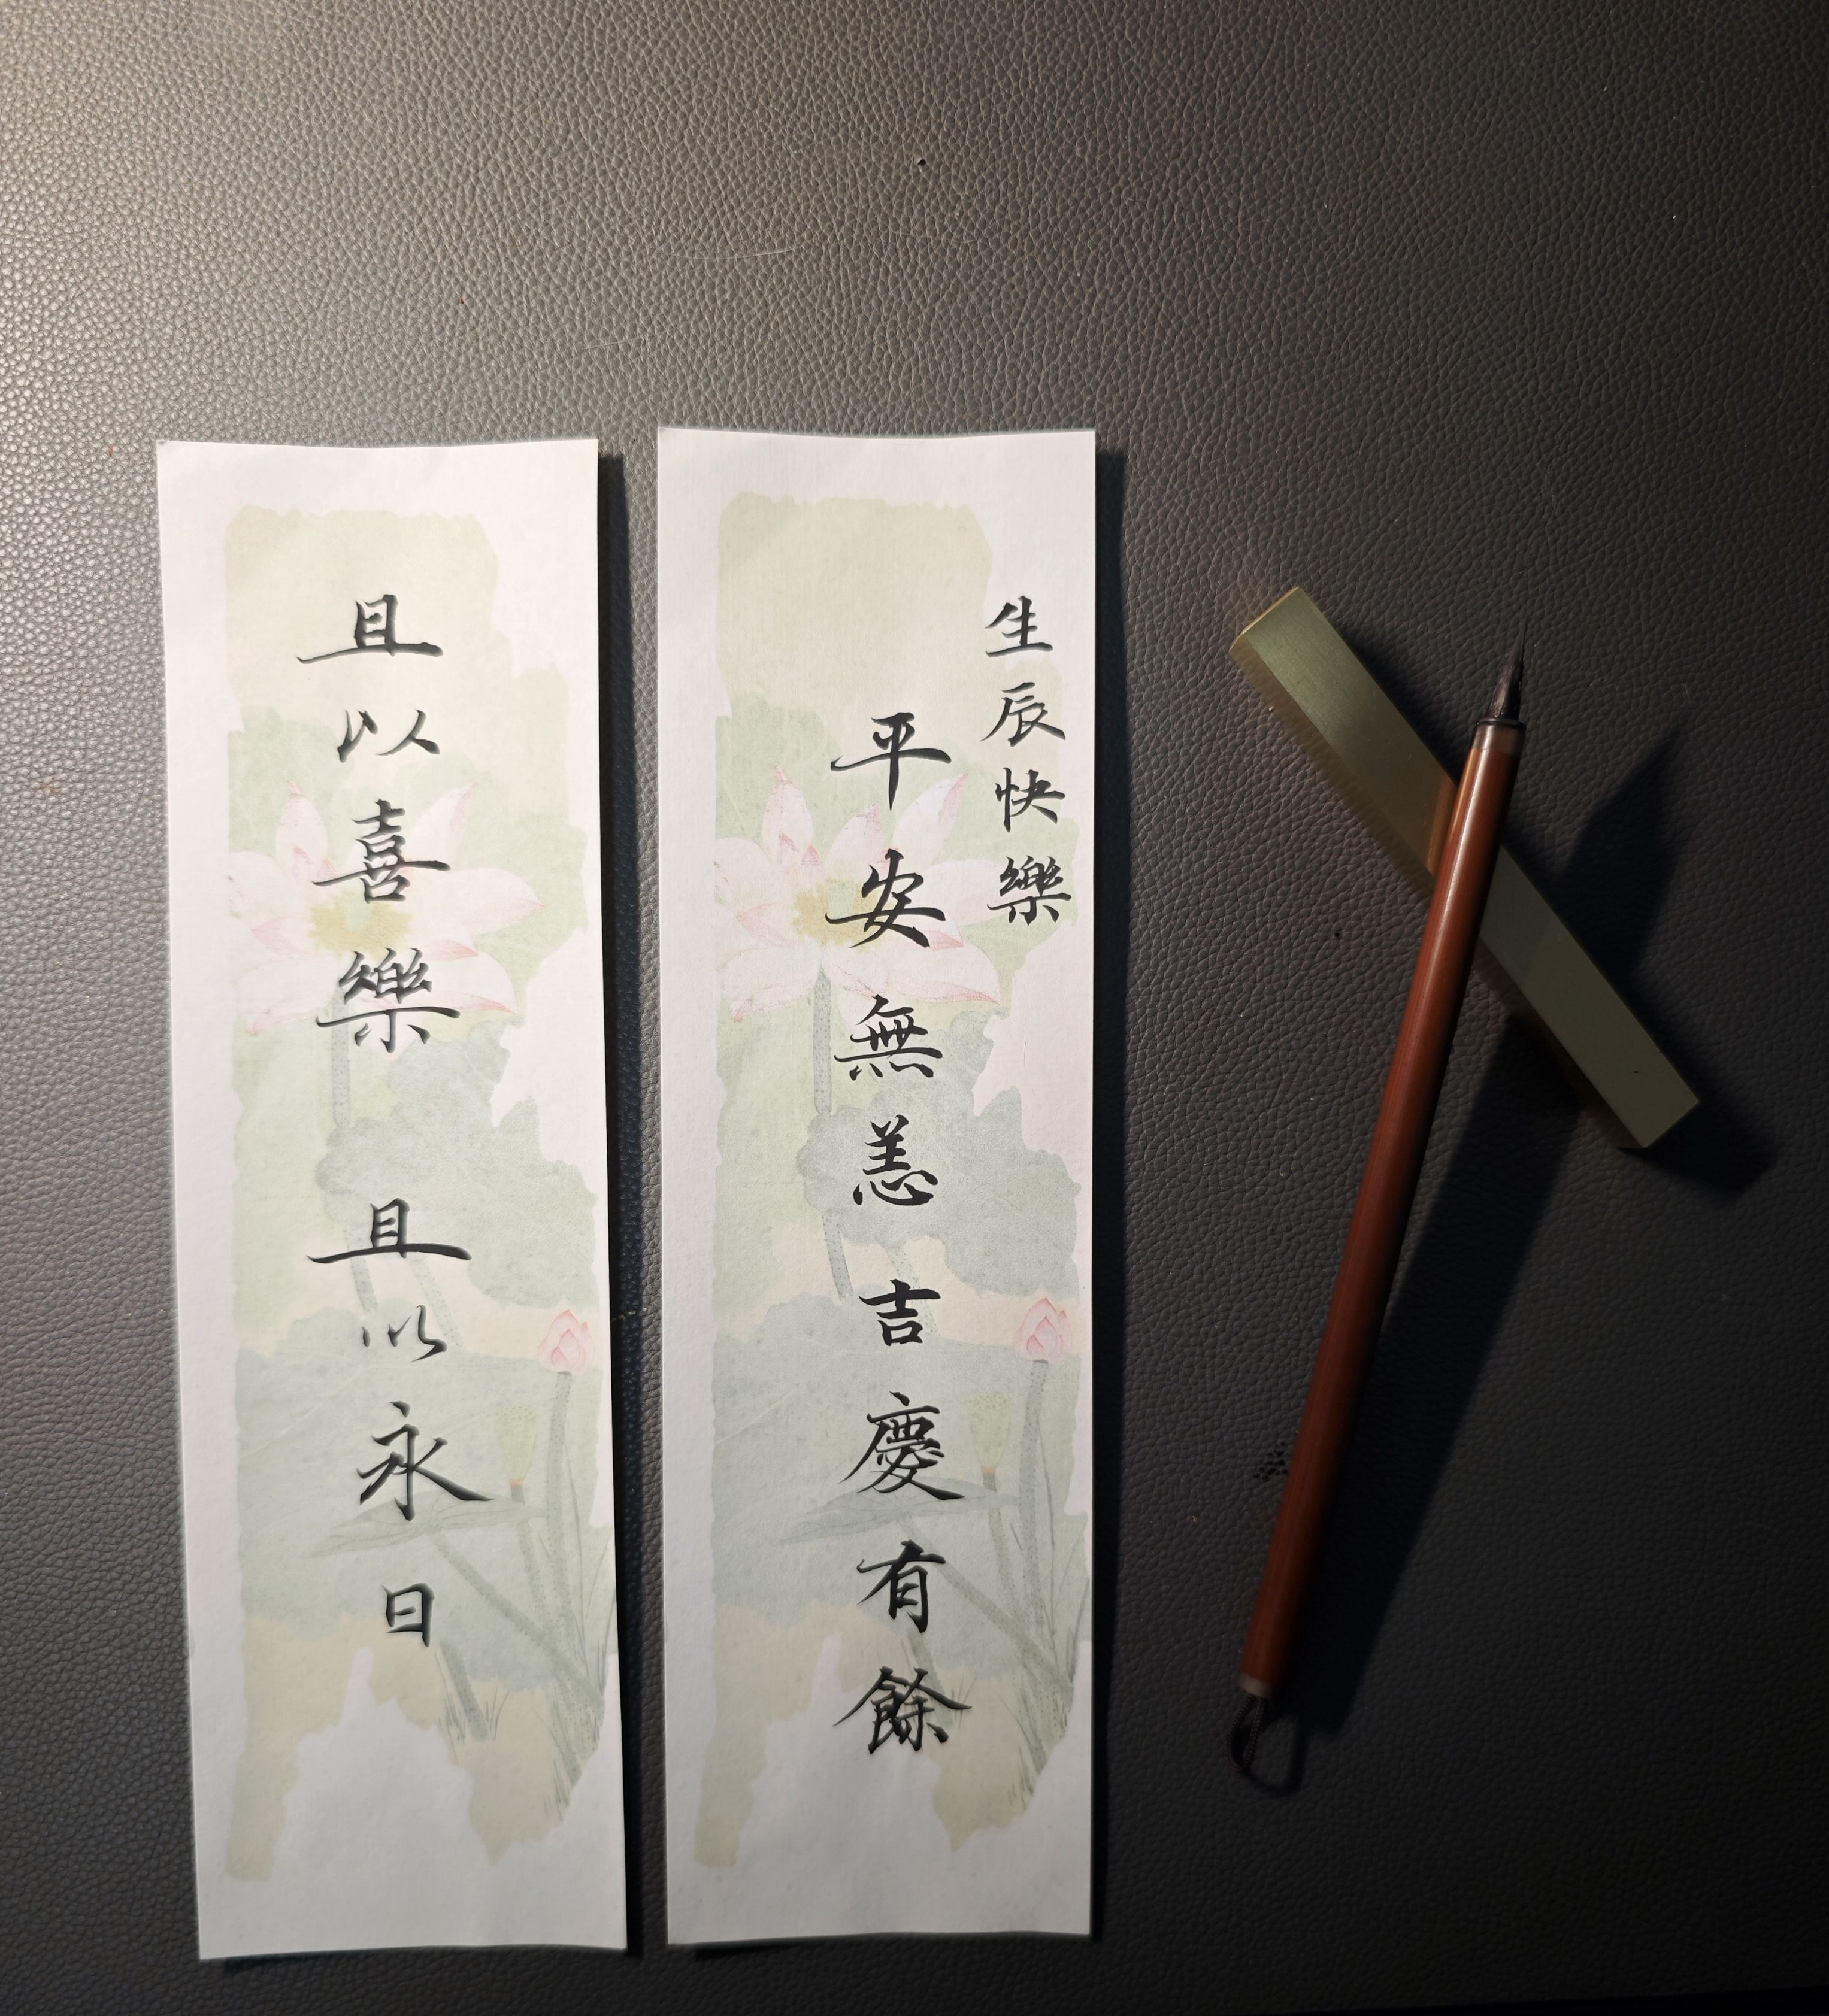 生辰快樂
平安無恙吉慶有餘
且以喜樂且以永日